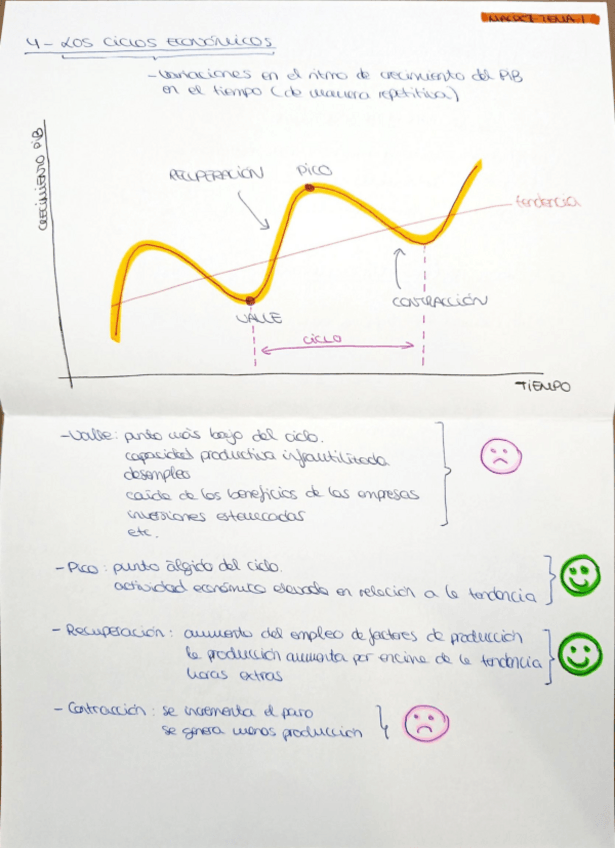 MACRO TEMA 1
4- LOS CICLOS ECONÓMICOS
- Variaciones en el ritmo de crecimiento del PiB
en el tiempo (de manera repetitiva)
CRECIMIENTO PiB
RECUPERACIÓN
PICO
tendencia
VALLE
CONTRACCIÓN
CICLO
TIEMPO
- Valle: punto más bajo del ciclo.
capacidad productiva infrautilizada
desempleo
caída de los beneficios de las empresas
inversiones estancadas
etc.
- Pico: punto álgido del ciclo.
actividad económica elevada en relación a la tendencia
- Recuperación: aumento del empleo de factores de producción
la producción aumenta por encima de la tendencia
horas extras
- Contracción: se incrementa el paro
se genera menos producción